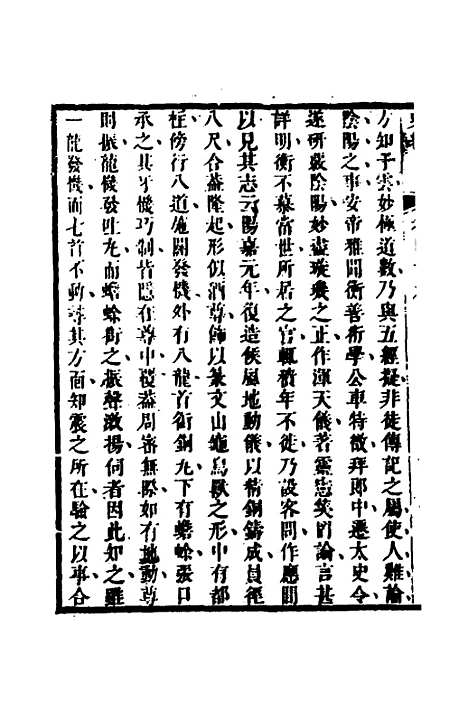 方知子雲妙極道數乃與五經擬非徒傳記之屬使人難論
陰陽之事安帝雅聞衡善術學公車特徵拜郎中遷太史令
遂研覈陰陽妙盡璇璣之正作渾天儀著靈憲筭罔論言甚
詳明衡不慕當世所居之官輒積年不徙乃設客問作應閒
以見其志云陽嘉元年復造候風地動儀以精銅鑄成員徑
八尺合蓋隆起形似酒尊飾以篆文山龜鳥獸之形中有都
柱傍行八道施關發機外有八龍首銜銅丸下有蟾蜍張口
承之其牙機巧制皆隱在尊中覆蓋周密無際如有地動尊
則振龍機發吐丸而蟾蜍銜之振聲激揚伺者因此知之雖
一龍發機而七首不動尋其方面知震之所在驗之以事合